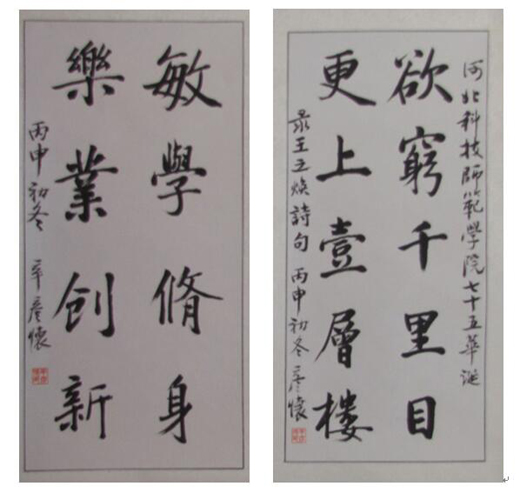 敏學脩身
樂業創新
丙申初冬 辛彦懷
河北科技師範學院七十五華誕
欲窮千里目
更上壹層樓
录王之焕詩句 丙申初冬 彦懷